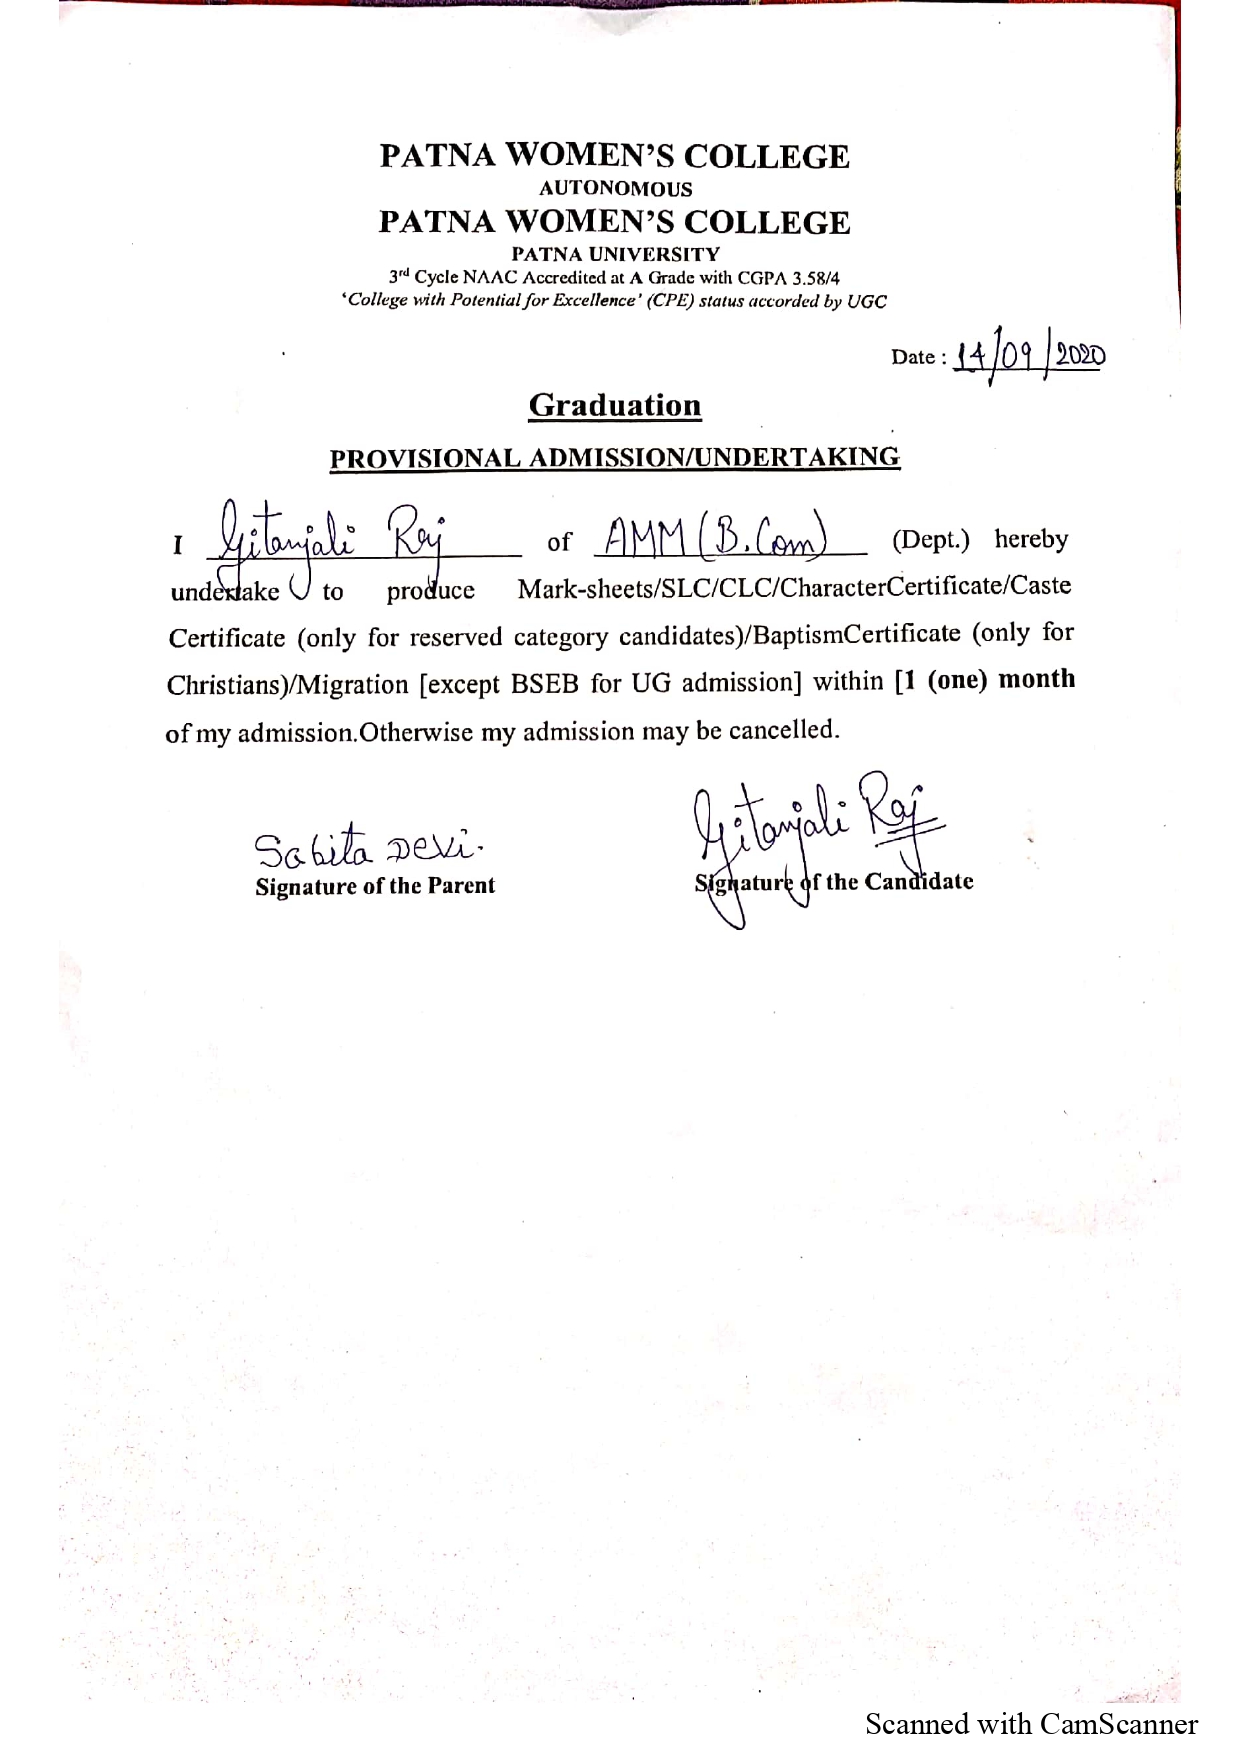 PATNA WOMEN'S COLLEGE
AUTONOMOUS
PATNA WOMEN'S COLLEGE
PATNA UNIVERSITY
3rd Cycle NAAC Accredited at A Grade with CGPA 3.58/4
'College with Potential for Excellence' (CPE) status accorded by UGC
Date : 14/09/2020
Graduation
PROVISIONAL ADMISSION/UNDERTAKING
I Gitanjali Raj of AMM (B.Com) (Dept.) hereby
undertake to produce Mark-sheets/SLC/CLC/CharacterCertificate/Caste
Certificate (only for reserved category candidates)/BaptismCertificate (only for
Christians)/Migration [except BSEB for UG admission] within [1 (one) month
of my admission.Otherwise my admission may be cancelled.
Sabita Devi. Gitanjali Raj
Signature of the Parent Signature of the Candidate
Scanned with CamScanner